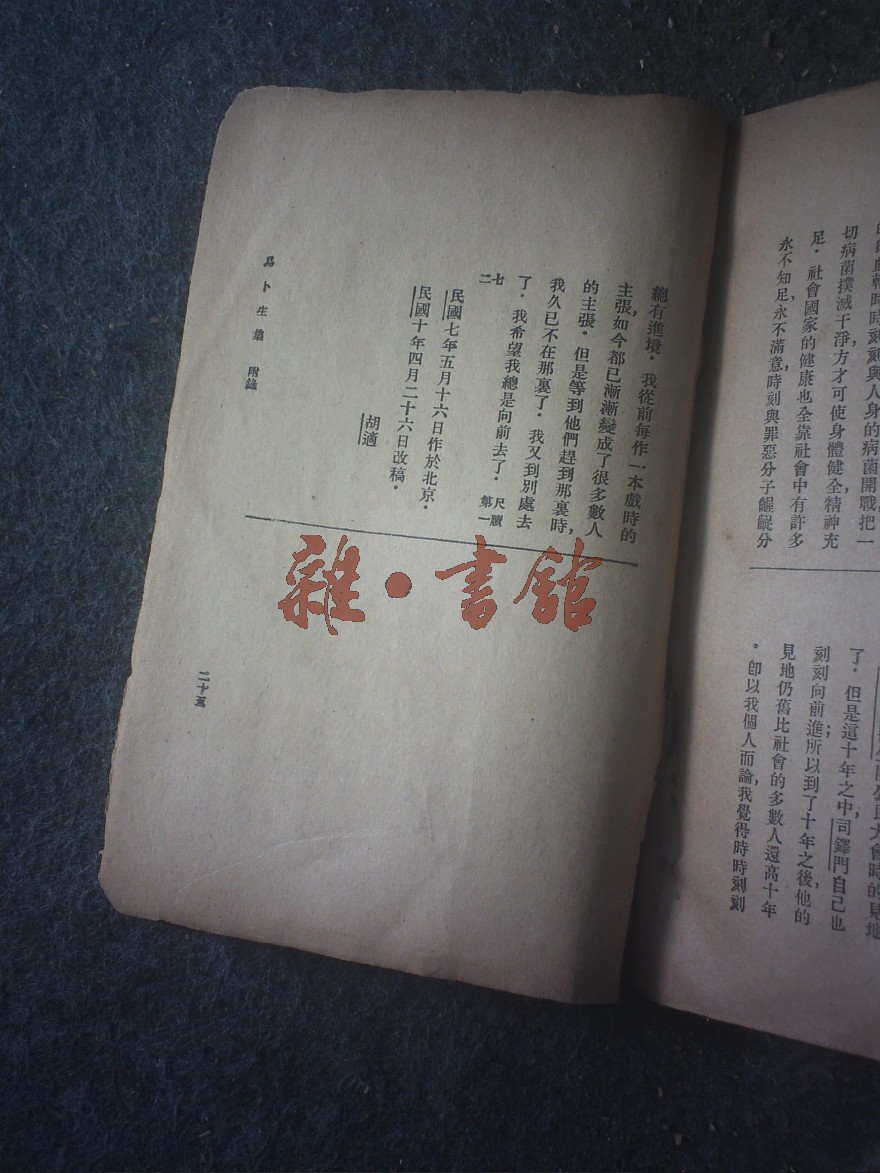 切病菌撲滅干淨，方才可使身體健全，精神充
足．社會國家的健康也全靠社會中有許多
永不知足，永不滿意，時刻與罪惡分子齷齪分
了．但是這十年之中，司鐸門自己也
刻刻向前進；所以到了十年之後，他的
見地仍舊比社會的多數人還高十年
．卽以我個人而論，我覺得時時刻刻
總有進境．我從前每作一本戲時的
主張，如今都已漸漸變成了很多數人
的主張．但是等到他們趕到那裏時，
我久已不在那裏了．我又到別處去
了．我希望我總是向前去了．尺牘第一
七二
民國七年五月十六日作於北京．
民國十年四月二十六日改稿．
胡適
易卜生集 附錄
二十五
雜·書館